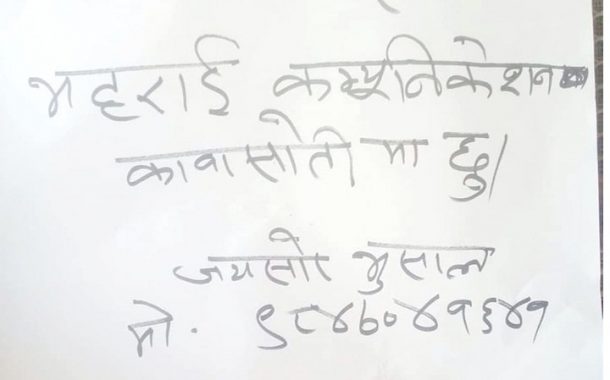 भट्टराई कम्युनिकेशन
कावासोती मा छु।
जयसोर भुसाल
मो. ९८४७०४१६४१